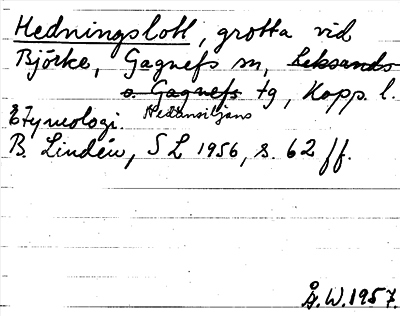 Hedningsloll, grotta vid
Björke, Gagnefs sn, Leksands
o. Gagnefs tg, Kopp. l.
Nedansiljans
Etymologi.
B. Lindén, SL 1956, s. 62 ff.
Å.W. 1957.